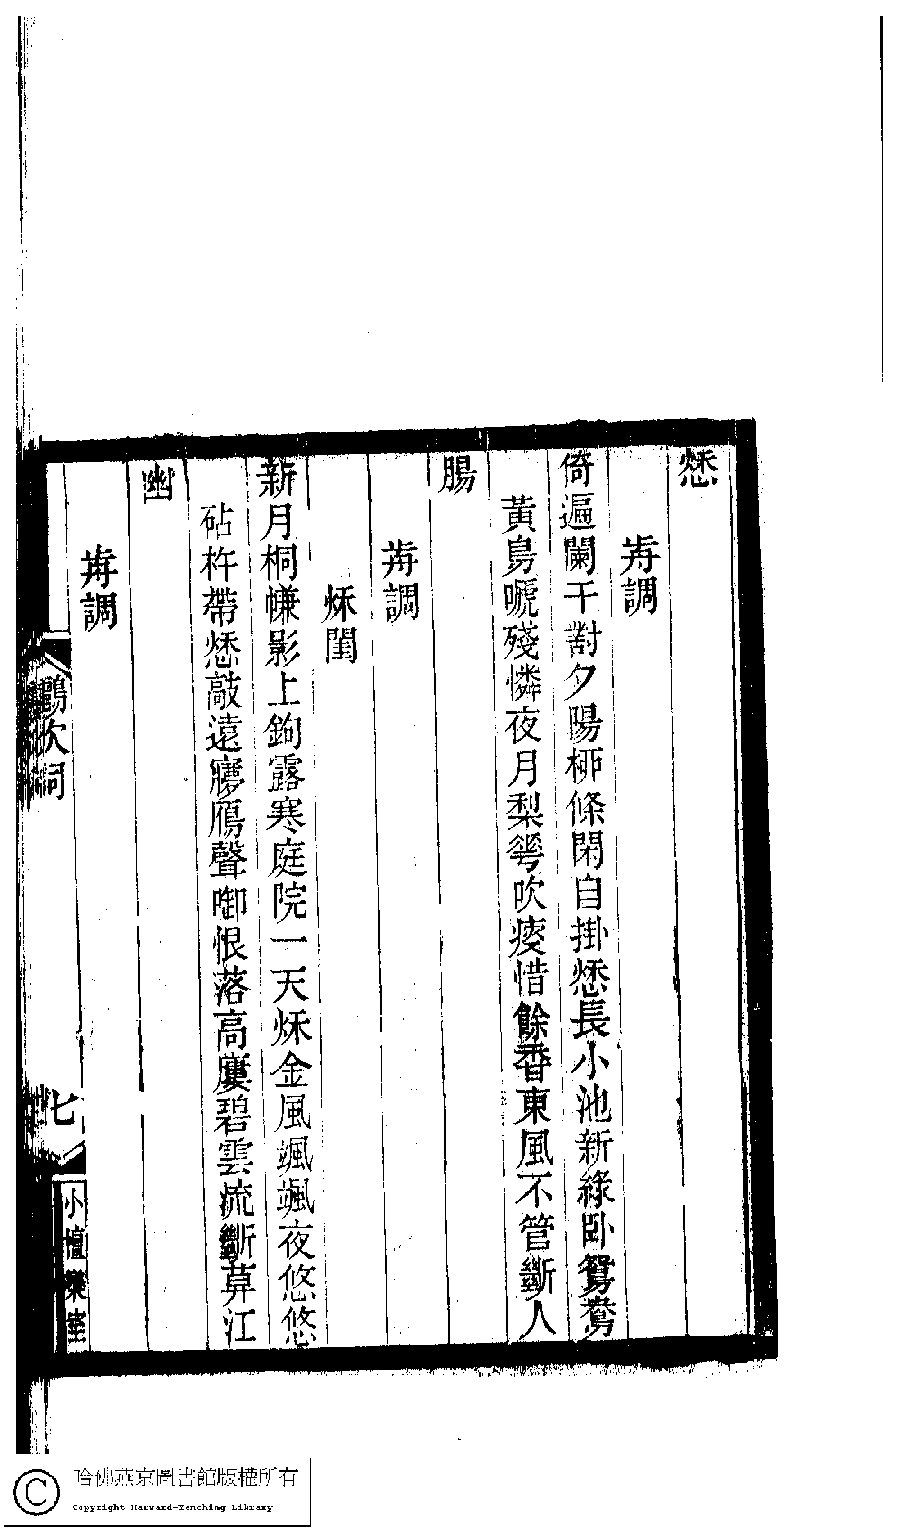 𢞐
再調
倚遍闌干對夕陽柳條閑自掛愁長小池新綠臥鴛鴦
黃鳥嗁殘憐夜月梨琴吹瘦惜餘香東風不管斷人
腸
再調
秌閨
新月桐㡘影上鉤露寒庭院一天秌金風颯颯夜悠悠
砧杵帶愁敲遠㝱鴈聲啣恨落高廔碧雲流斷萛江
幽
再調
鷗吹詞
七
小檀欒室
哈佛燕京圖書館版權所有
Copyright Harvard-Yenching Library